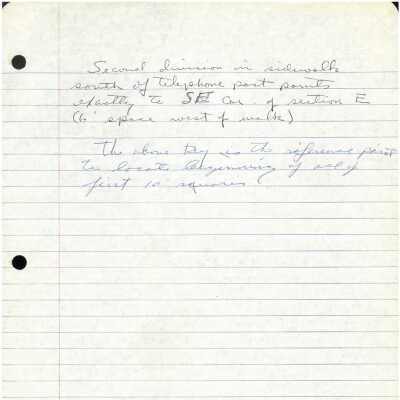 Second division in sidewalk
south of telephone post points
exactly to SE Cor. of section E
(6' space west of walk)
The above Key is the reference point
to locate beginning of all
first 10' squares.